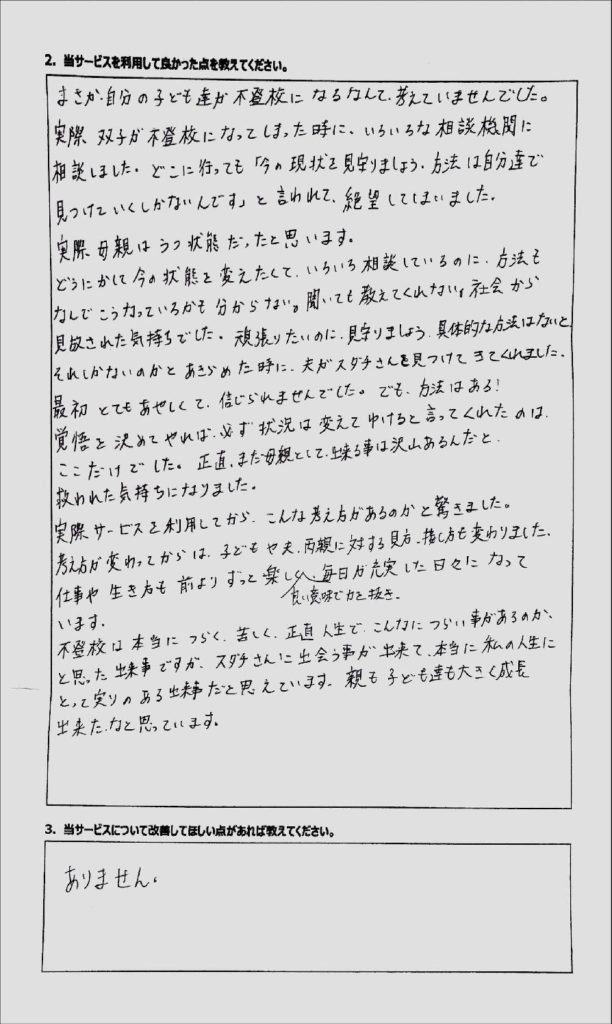 2. 当サービスを利用して良かった点を教えてください。
まさか自分の子ども達が不登校になるなんて、考えていませんでした。
実際 双子が不登校になってしまった時に、いろいろな相談機関に
相談しました。どこに行っても「今の現状を見守りましょう。方法は自分達で
見つけていくしかないんです」と言われて、絶望してしまいました。
実際 母親はうつ状態だったと思います。
どうにかして今の状態を変えたくて、いろいろ相談しているのに、方法も
なんでこうなっているかも分からない。聞いても教えてくれない。社会から
見放された気持ちでした。頑張りたいのに、見守りましょう、具体的な方法はないと、
それしかないのかとあきらめた時に、夫がスダチさんを見つけてきてくれました。
最初 とてもあやしくて、信じられませんでした。でも、方法はある!
覚悟を決めてやれば、必ず状況は変えてゆけると言ってくれたのは、
ここだけでした。正直、まだ母親として、出来る事は沢山あるんだと、
救われた気持ちになりました。
実際サービスを利用してから、こんな考え方があるのかと驚きました。
考え方が変わってからは、子どもや夫、両親に対する見方、接し方も変わりました。
仕事や生き方も前よりずっと楽しく、毎日が充実した日々になって
良い意味で力を抜き、
います。
不登校は本当につらく、苦しく、正直 人生で、こんなにつらい事があるのか、
と思った出来事ですが、スダチさんに出会う事が出来て、本当に私の人生に
とって実りのある出来事だと思えています。親も子ども達も大きく成長
出来たなと思っています。
3. 当サービスについて改善してほしい点があれば教えてください。
ありません。